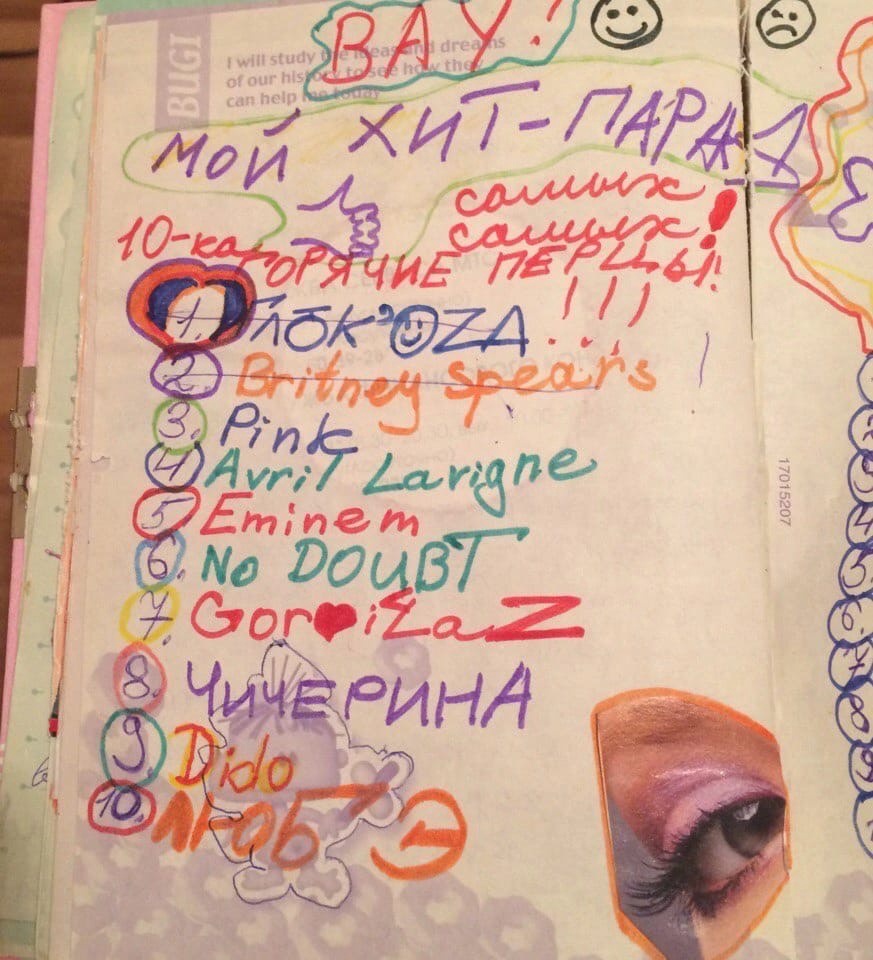 ВАУ!
BUGI
I will study the ideas and dreams
of our history to see how they
can help me today
МОЙ ХИТ-ПАРАД
10-ка
самых
самых!
ГОРЯЧИЕ ПЕРЦЫ!
!!!
1. ГЛЮК'OZA
2. Britney Spears
3. Pink
4. Avril Lavigne
5. Eminem
6. No DOUBT
7. GorillaZ
8. ЧИЧЕРИНА
9. Dido
10. ЛЮБЭ
17015207
4
5
6.
7
8